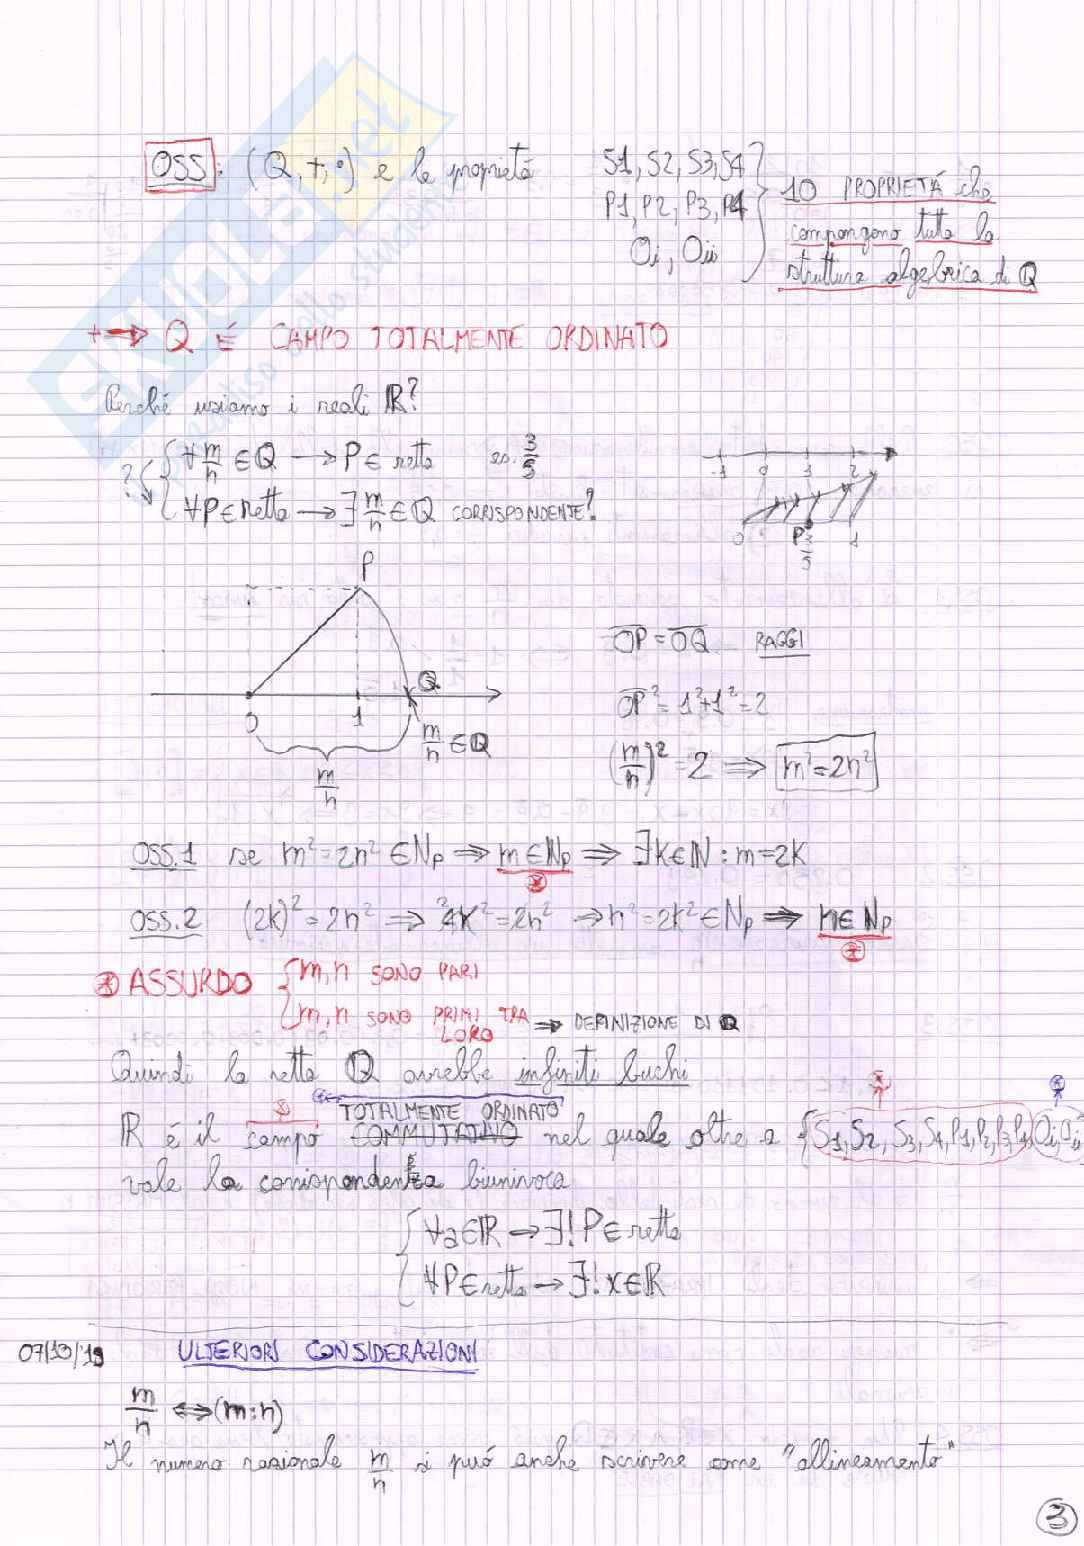 OSS: (Q,+,·) e le proprietá S1, S2, S3, S4
P1, P2, P3, P4
Oi, Oii
10 PROPRIETÁ che
compongono tutta la
struttura algebrica di Q
+⇒ Q É CAMPO TOTALMENTE ORDINATO
Perché usiamo i reali R?
? { ∀ m/n ∈ Q → P ∈ retta es. 3/5
∀P ∈ retta → ∃ m/n ∈ Q CORRISPONDENTE?
-1 0 1 2
0 P 3/5 1
P
0 1 Q
m/n ∈ Q
m/n
OP = OQ RAGGI
OP² = 1²+1² = 2
(m/n)² = 2 ⇒ m² = 2n²
OSS.1 se m² = 2n² ∈ Np ⇒ m ∈ Np ⇒ ∃K∈N : m = 2K
OSS.2 (2k)² = 2n² ⇒ ²4K² = 2n² ⇒ n² = 2K² ∈ Np ⇒ n ∈ Np
* ASSURDO { m, n SONO PARI
m, n SONO PRIMI TRA LORO ⇒ DEFINIZIONE DI Q
Quindi la retta Q avrebbe infiniti buchi
TOTALMENTE ORDINATO
R é il campo COMMUTATIVO nel quale oltre a {S1, S2, S3, S4, P1, P2, P3, P4, Oi, Oii
vale la corrispondenza biunivoca
{ ∀a∈R → ∃! P∈ retta
∀P∈retta → ∃! x∈R
07/10/19 ULTERIORI CONSIDERAZIONI
m/n ⇔ (m:n)
Il numero razionale m/n si puó anche scrivere come "allineamento"
3
SKUOLA.net